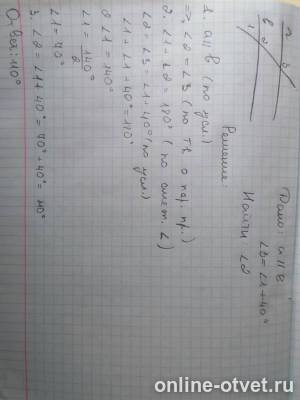 Дано: a || b
∠3 = ∠1 + 40°
Найти ∠2
Решение
1. a || b (по усл.)
=> ∠2 = ∠3 (по т. о пар. пр.)
2. ∠1 + ∠2 = 180° (по смеж. ∠)
∠2 = ∠3 = ∠1 + 40° (по усл.)
∠1 + ∠1 + 40° = 180°
2 ∠1 = 140°
∠1 = 140° / 2
∠1 = 70°
3. ∠2 = ∠1 + 40° = 70° + 40° = 110°
Ответ: 110°
a
b
1
2
3
online-otvet.ru